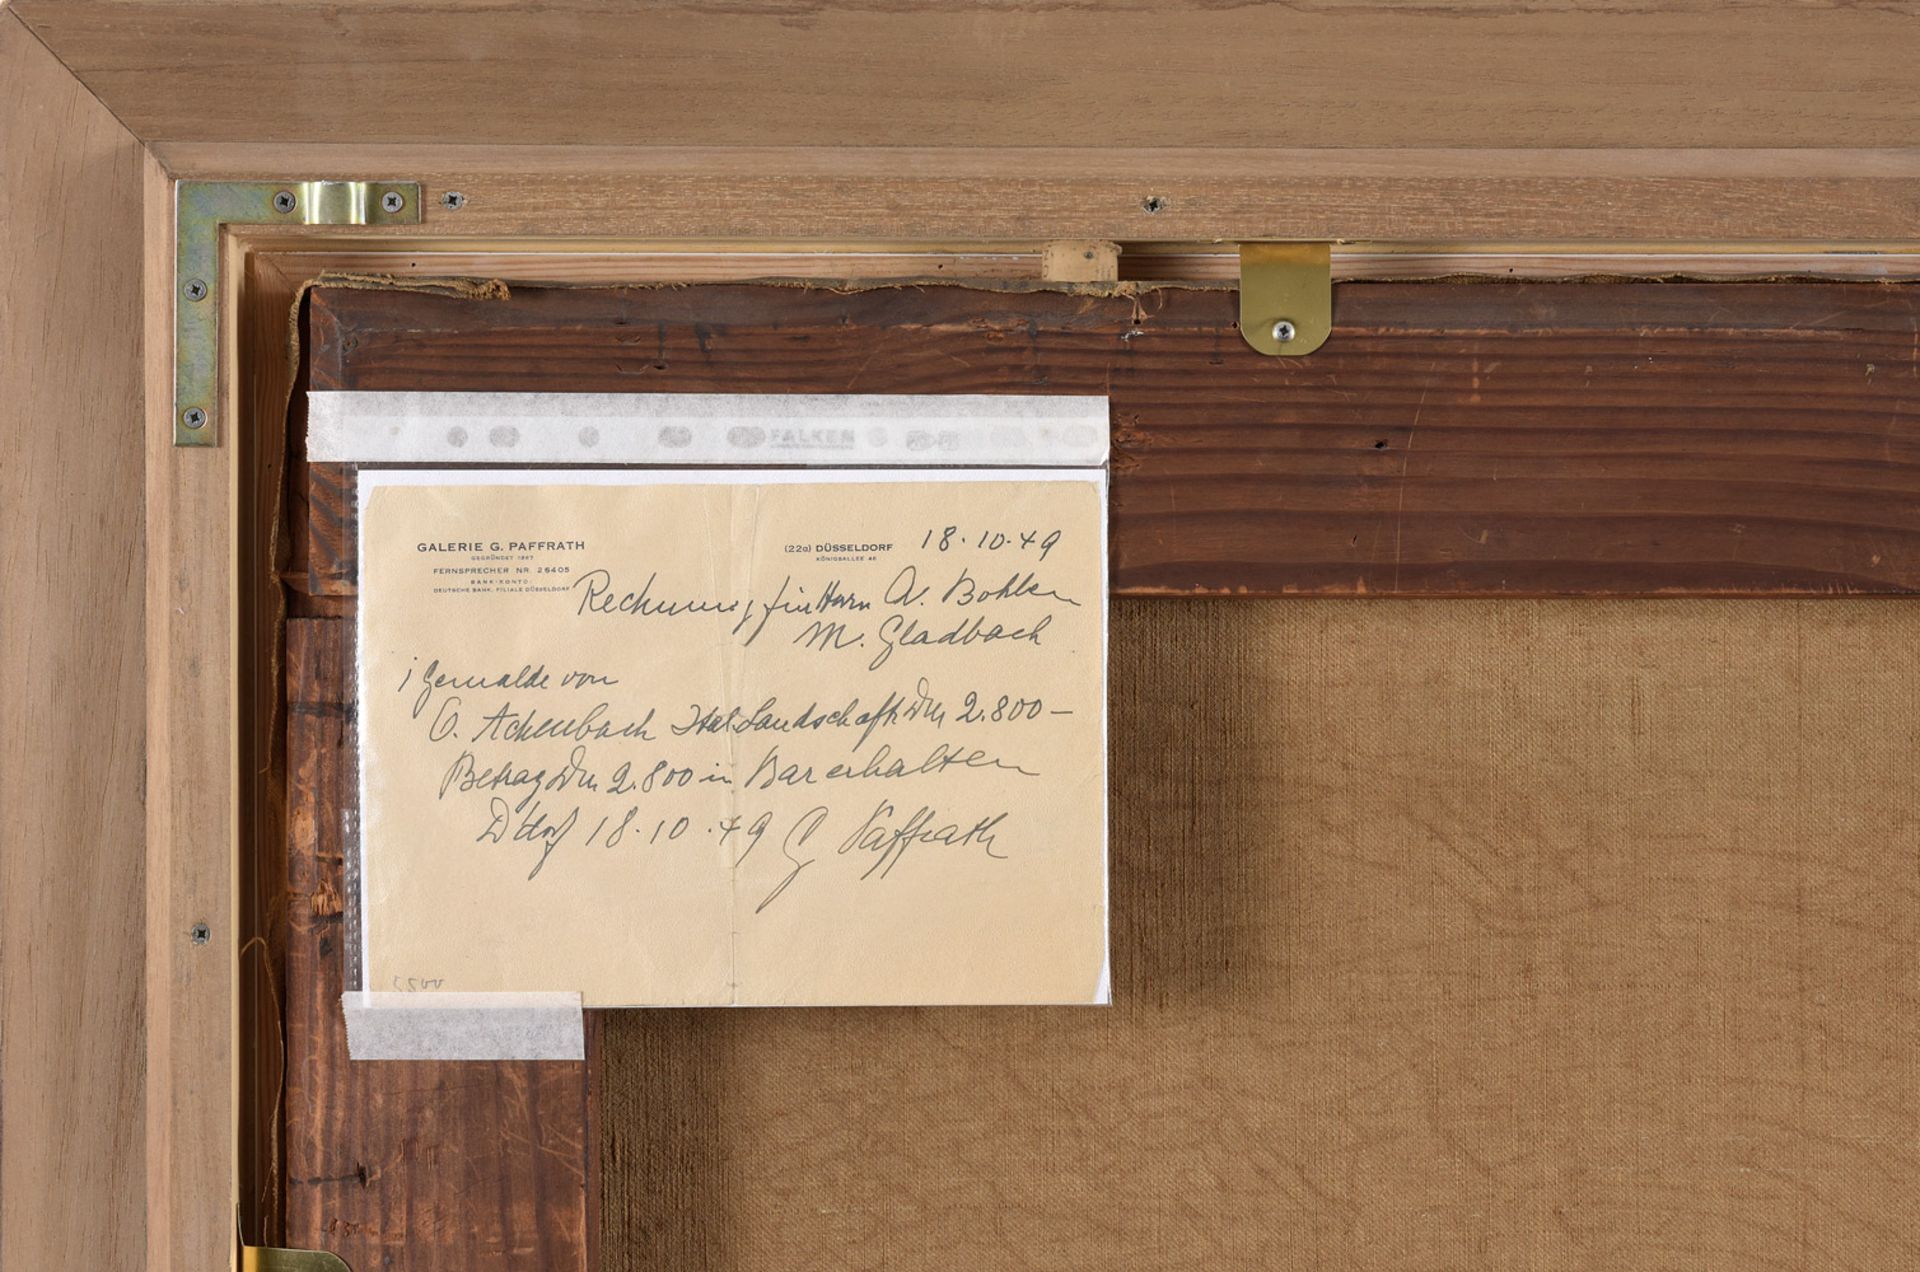 FALKEN
GALERIE G. PAFFRATH
GEGRÜNDET 1867
FERNSPRECHER NR. 26405
BANK-KONTO:
DEUTSCHE BANK, FILIALE DÜSSELDORF
(22a) DÜSSELDORF 18.10.49
KÖNIGSALLEE 46
Rechnung für Herrn A. Bohlen
M. Gladbach
1 Gemälde von
O. Achenbach Ital. Landschaft DM 2.800 —
Betrag DM 2.800 in Bar erhalten
D'dorf 18.10.49 G. Paffrath
5500